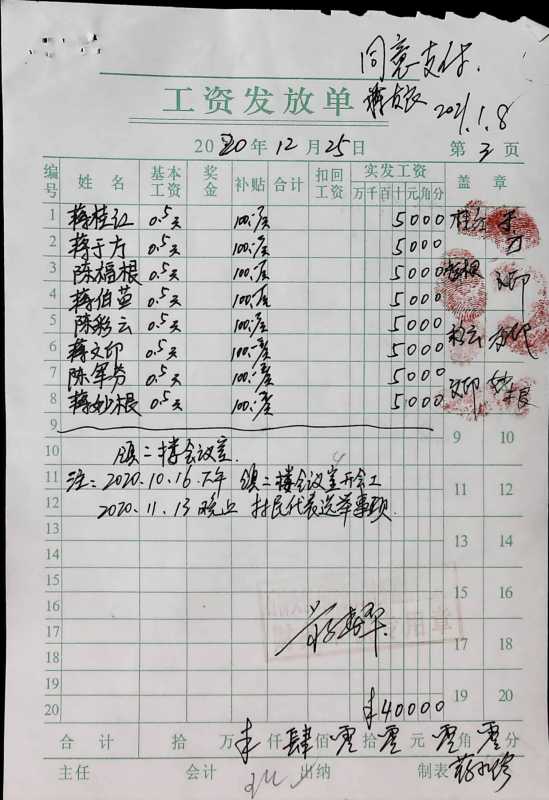 同意支付.
2021.1.8
工资发放单
2020年12月25日 第3页
编号 姓名 基本工资 奖金 补贴 合计 扣回工资 实发工资 万千百十元角分 盖章
1 蒋桂红 0.5天 100元/天 5000
2 蒋于方 0.5天 100元/天 5000
3 陈福根 0.5天 100元/天 5000
4 蒋伯苗 0.5天 100元/天 5000
5 陈彩云 0.5天 100元/天 5000
6 蒋文印 0.5天 100元/天 5000
7 陈军芬 0.5天 100元/天 5000
8 蒋妙根 0.5天 100元/天 5000
9 9 10
10 镇二楼会议室.
11 注: 2020.10.16.下午 镇二楼会议室开会工 11 12
12 2020.11.13 晚上 村民代表选举事项.
13 13 14
14
15 15 16
16
17 17 18
18
19 19 20
20 ¥40000
合计 拾 万 ¥ 仟 肆 佰 零 拾 零 元 零 角 零 分
主任 会计 出纳 制表